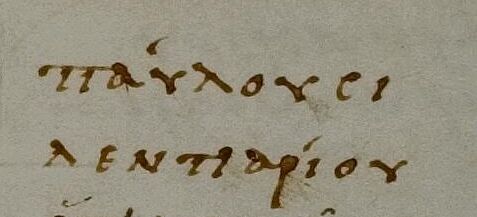 παύλου ϲι
λεντιαρίου